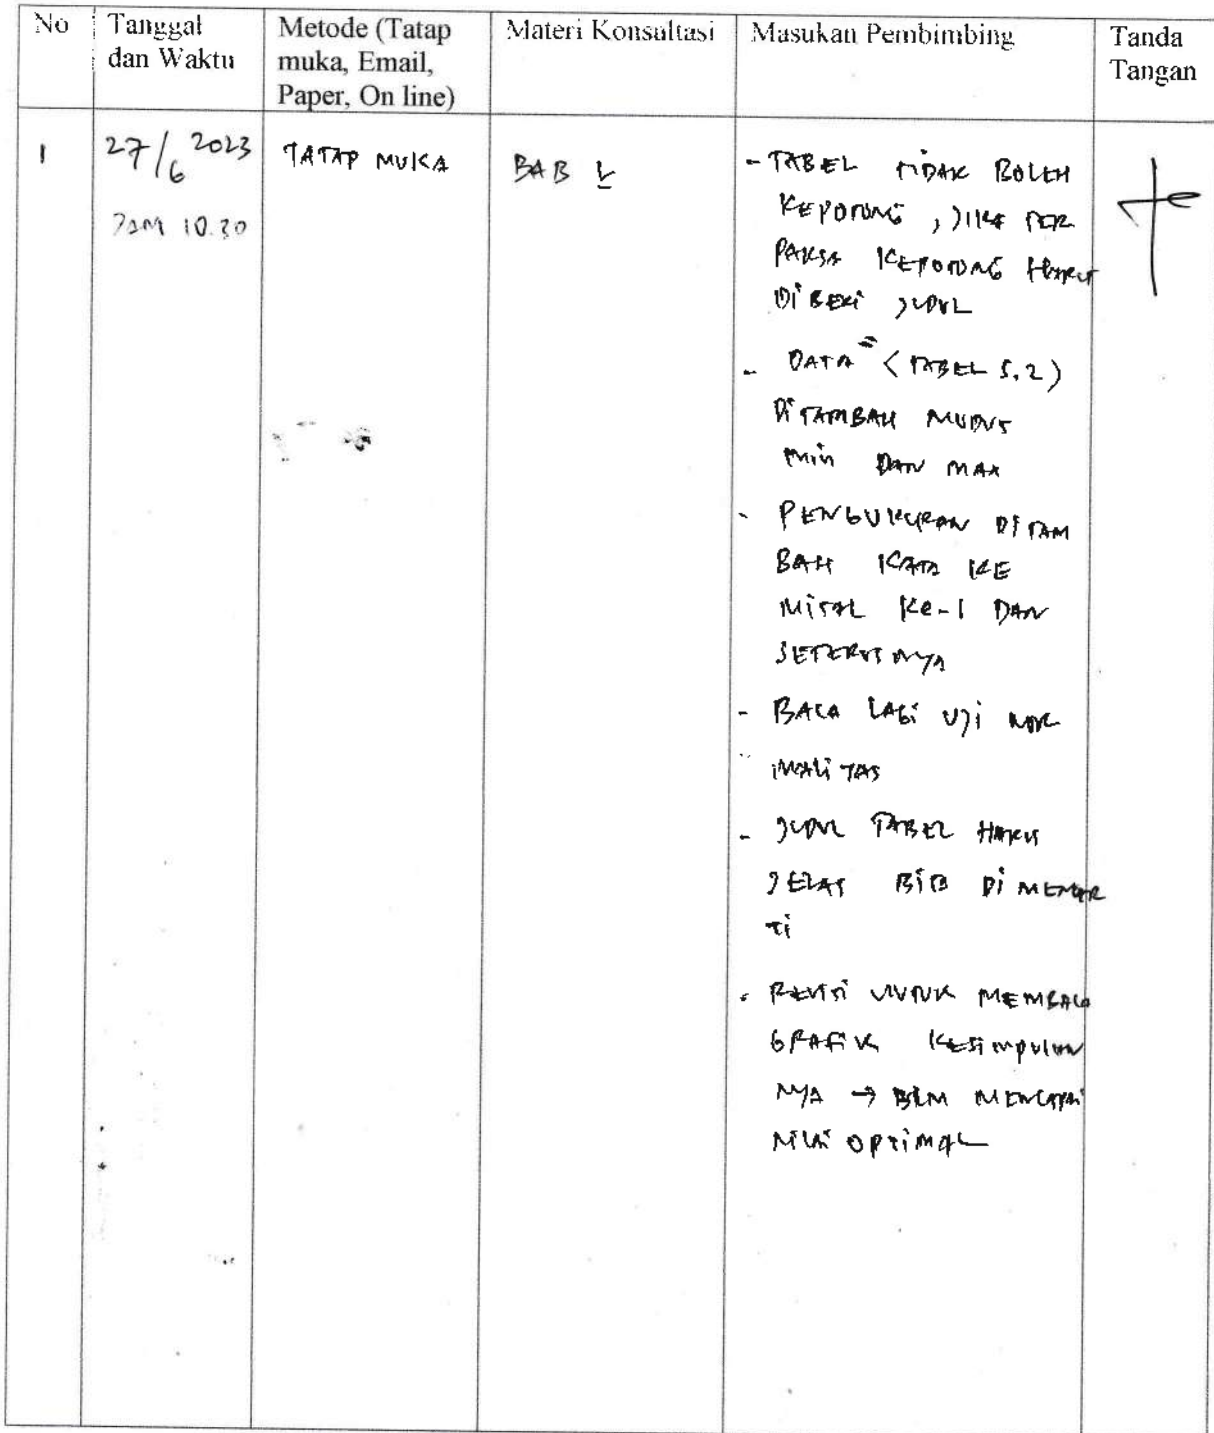 No
Tanggal
dan Waktu
Metode (Tatap
muka, Email,
Paper, On line)
Materi Konsultasi
Masukan Pembimbing
Tanda
Tangan
1
27/6 2023
JAM 10.30
TATAP MUKA
BAB V
- TABEL TIDAK BOLEH
KEPOTONG, JIKA TER
PAKSA KEPOTONG HARUS
DI BERI JUDUL
- DATA = (TABEL 5.2)
DI TAMBAH MODUS
MIN DAN MAX
- PENGUKURAN DI TAM
BAH KATA KE
MISAL KE-1 DAN
SETERUSNYA
- BACA LAGI UJI NOR
MALITAS
- JUDUL TABEL HARUS
JELAS BISA DI MENGER
TI
- REVISI UNTUK MEMBACA
GRAFIK KESIMPULAN
NYA → BLM MENCAPAI
NILAI OPTIMAL